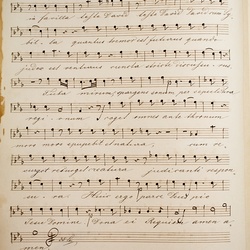 in favilla teste David teste David cum Sy-
bil-la quantus tremor est futurus quando
judex est venturus cuncta stricte discussu-rus
Tuba mirum spargens sonum per sepulchra
regi-onum coget omnes ante thronum
mors stupebit et natura cum re-
surget resurget creatura judicanti respon-
su-ra Huic ergo parce Deus pie
Jesu Domine Dona eis Requiem amen a-
men